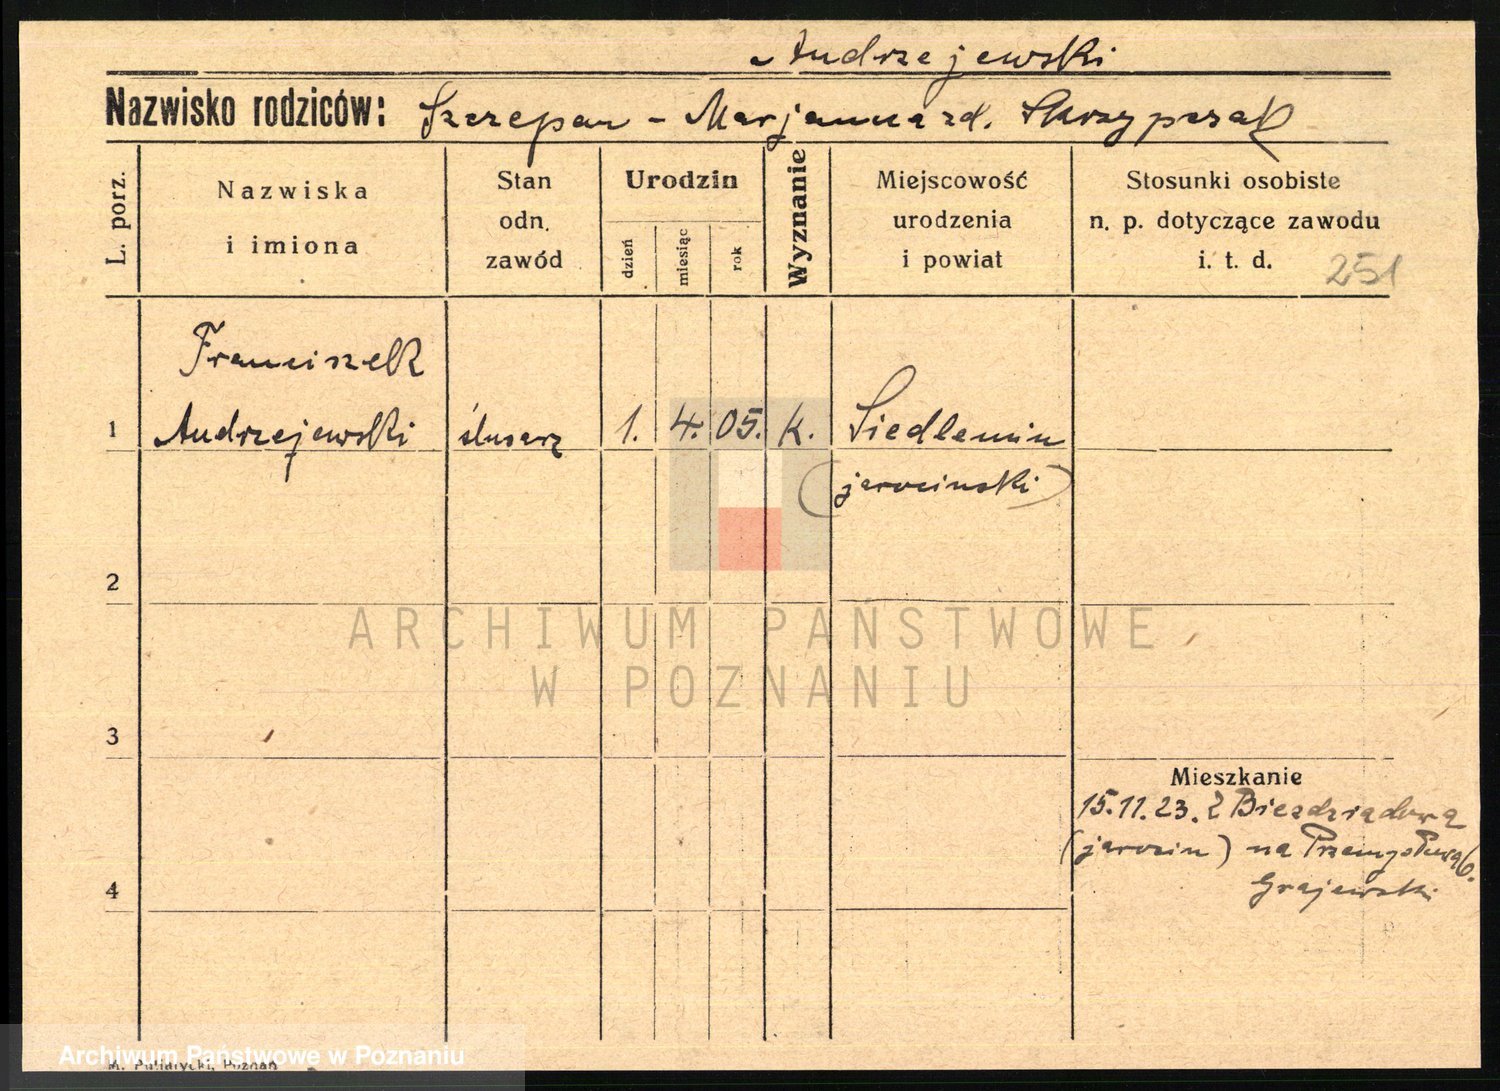 Andrzejewski
Nazwisko rodziców: Szczepan - Marjanna zd. Skrzypczak
L. porz.
Nazwiska
i imiona
Stan
odn.
zawód
Urodzin
dzień
miesiąc
rok
Wyznanie
Miejscowość
urodzenia
i powiat
Stosunki osobiste
n. p. dotyczące zawodu
i. t. d. 251
Franciszek
1 Andrzejewski ślusarz 1. 4. 05. k. Siedlemin
(jarocinski)
2
ARCHIWUM PAŃSTWOWE
W POZNANIU
3
Mieszkanie
15.11.23. z Biezdziadowa
(jarocin) na Przemysłową 6.
Grajewski
4
Archiwum Państwowe w Poznaniu
M. Putiatycki, Poznań